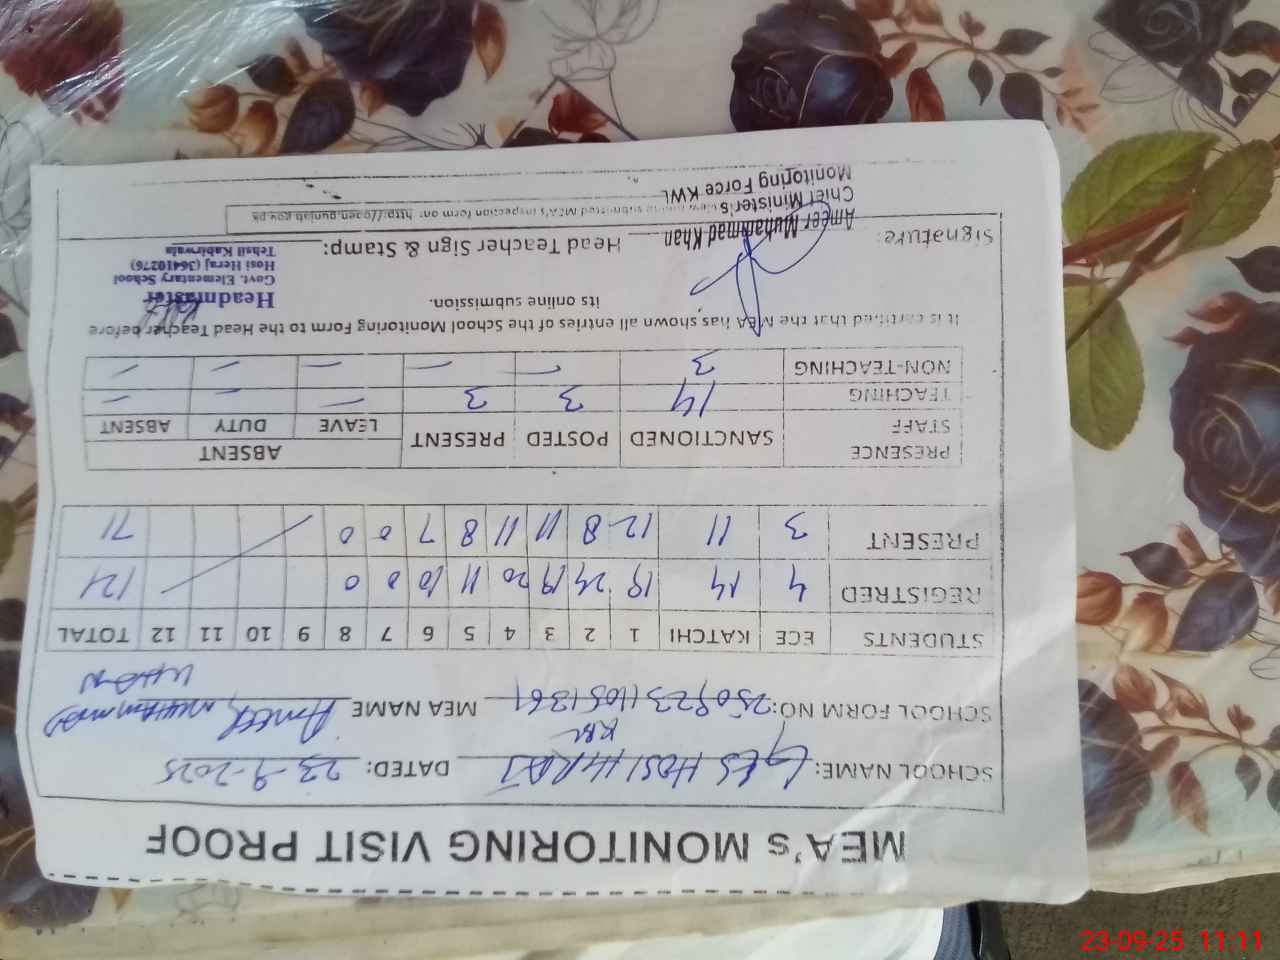 MEA's MONITORING VISIT PROOF
SCHOOL NAME: GES HOSI HRAJ DATED: 23-9-2025
KBL
SCHOOL FORM NO: MEA NAME Ameer Muhammad
Khan
STUDENTS ECE KATCHI 1 2 3 4 5 6 7 8 9 10 11 12 TOTAL
REGISTRED 4 14 19 24 19 20 11 10 0 0 121
PRESENT 3 11 12 8 11 11 8 7 0 0 71
PRESENCE STAFF SANCTIONED POSTED PRESENT ABSENT
LEAVE DUTY ABSENT
TEACHING 14 3 3 — — —
NON-TEACHING 3 — — — — —
It is certified that the MEA has shown all entries of the School Monitoring Form to the Head Teacher before
its online submission.
Headmaster
Govt. Elementary School
Hosi Heraj (36410276)
Tehsil Kabirwala
Signature: Head Teacher Sign & Stamp:
Ameer Muhammad Khan
Chief Minister's
Monitoring Force KWL
submitted MEA's inspection form on: http://open.punjab.gov.pk
23-09-25 11:11